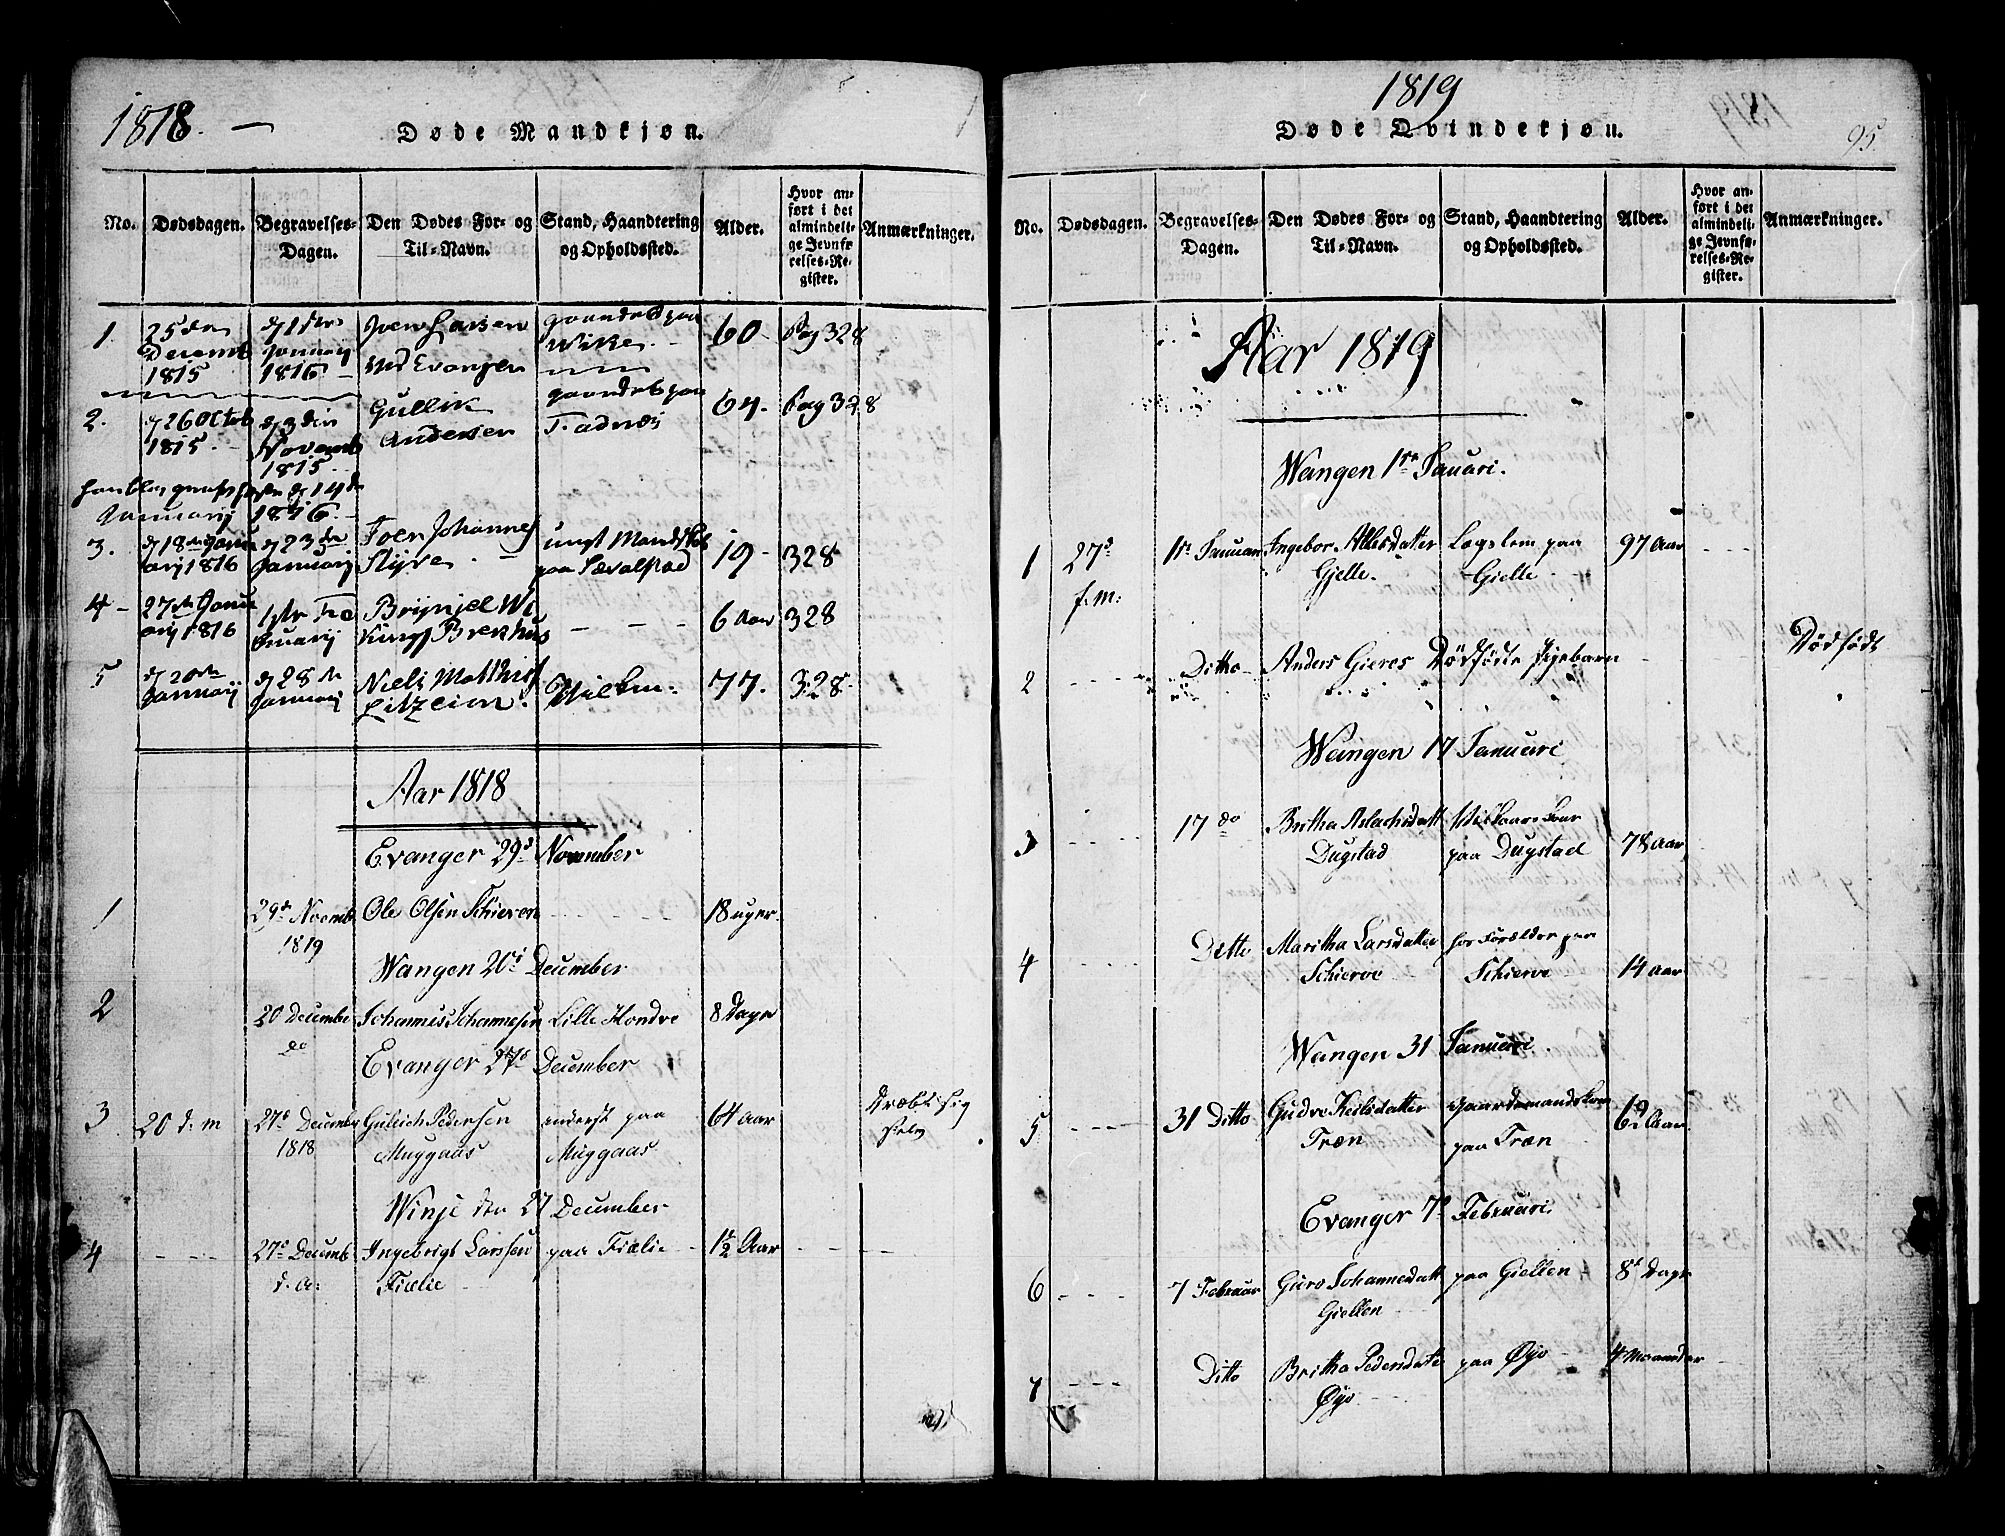 1818. —
Døde Mandkjøn.
No. Dødsdagen. Begravelses-Dagen. Den Dødes For- og Til-Navn. Stand, Haandtering og Opholdssted. Alder. Hvor anført i det almindelige Jevnførelses-Register. Anmærkninger.
1. 25 den Decemb 1815 Januarij 1816 Joen Larsen ved Evanger gaardet paa Wike 60 Pag 328
2. d 26 Octob 1815 d 3 die Novemb 1815 Gullik Andersen gaardet paa Fadnæs 64. Pag 328
d 14 de
Januarij 1816.
3. d 18 de Januarij 1816 d 23 de Januarij Joen Johannes Slijre ungt Mandskab paa Sævalstad 19 328
4 27 de Januarij 1816 Brijnjel Wikings Brekhus 6 Aar 328
5 d 20 de Januarij d 28 de Januarij Niels Matthis Litzeim 77. 328
Aar 1818
Evanger 29d November
1 29d Novemb 1819 Ole Olsen Schieren 18 uger
Wangen 20d December
2 20 December do Johannes Johannesen Lille Hondve 8 Dage
Evanger 27d December
3 20 d: m 27d December 1818 Gulich Pedersen Muggaas enderst paa Muggaas 64 Aar Dræbte sig selv
Winje den 27 December
4 27d Decemb d. a: Ingebrigt Larssen Fixlie paa Fixlie 1½ Aar
1819
Døde Qvindekjøn.
95.
No. Dødsdagen. Begravelses-Dagen. Den Dødes For- og Til-Navn. Stand, Haandtering og Opholdssted. Alder. Hvor anført i det almindelige Jevnførelses-Register. Anmærkninger.
Aar 1819
Wangen 1ste Januari.
1 27d f. m: 1te Januari Ingebor Allesdatter Gjelle. Lægslem paa Gielle 97 Aar
2 Ditto Anders Gieres Dödfödte Pigebarn Dödfödt
Wangen 17 Januari
3 17 do Britha Aslachsdatt Dugstad paa Dugstad 78 Aar
4 Ditto Maritha Larsdatter Schierve hos Forældre paa Schierve 14 Aar
Wangen 31 Januari.
5 31 Ditto Gudve Keilsdatter Træn Gaardemandskone paa Træn 62 Aar
Evanger 7d Februari.
6 7 Februar Guro Johannesdatt Giellen paa Giellen 8t Dage
7 Ditto Britha Pedersdatte Øyo paa Øyo 4 Maaneder